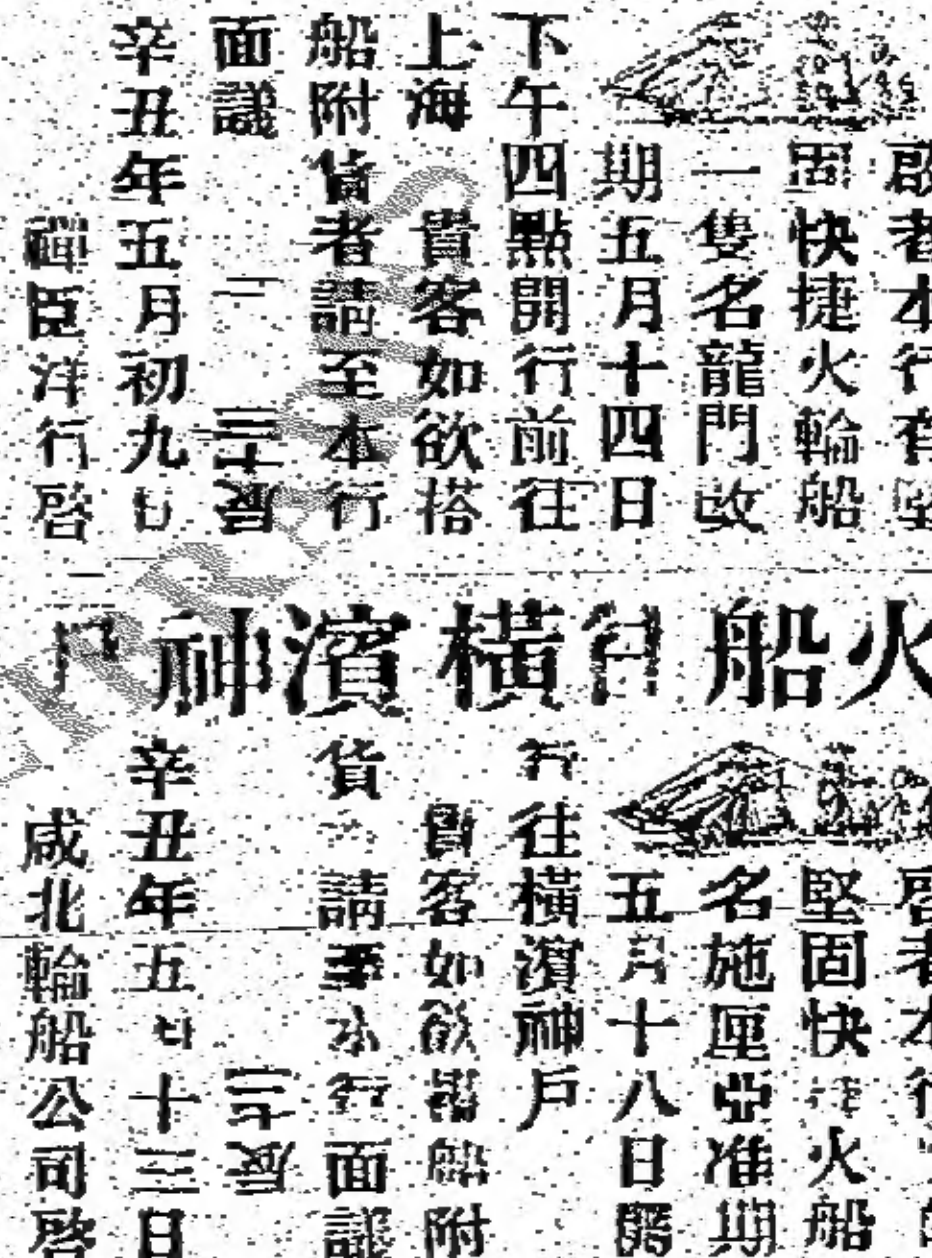 啟者本行有堅
固快捷火輪船
一隻名龍門改
期五月十四日
下午四點開行前往
上海 貴客如欲搭
船附貨者請至本行
面議
辛丑年五月初九日
禪臣洋行啓
火船行橫濱神戶
啓者本行
堅固快捷火船
名施厘亞准期
五月十八日開
行往橫濱神戶
貴客如欲搭船附
貨 請至本行面議
辛丑年五月十三日
咸北輪船公司啓